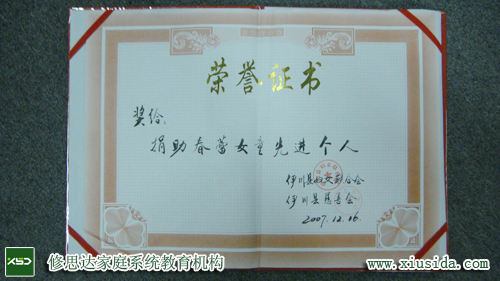 荣誉证书
奖给:
捐助春蕾女童先进个人
伊川县妇女联合会
伊川县慈善会
2007.12.16
XSD 修思达家庭系统教育机构
www.xiusida.com